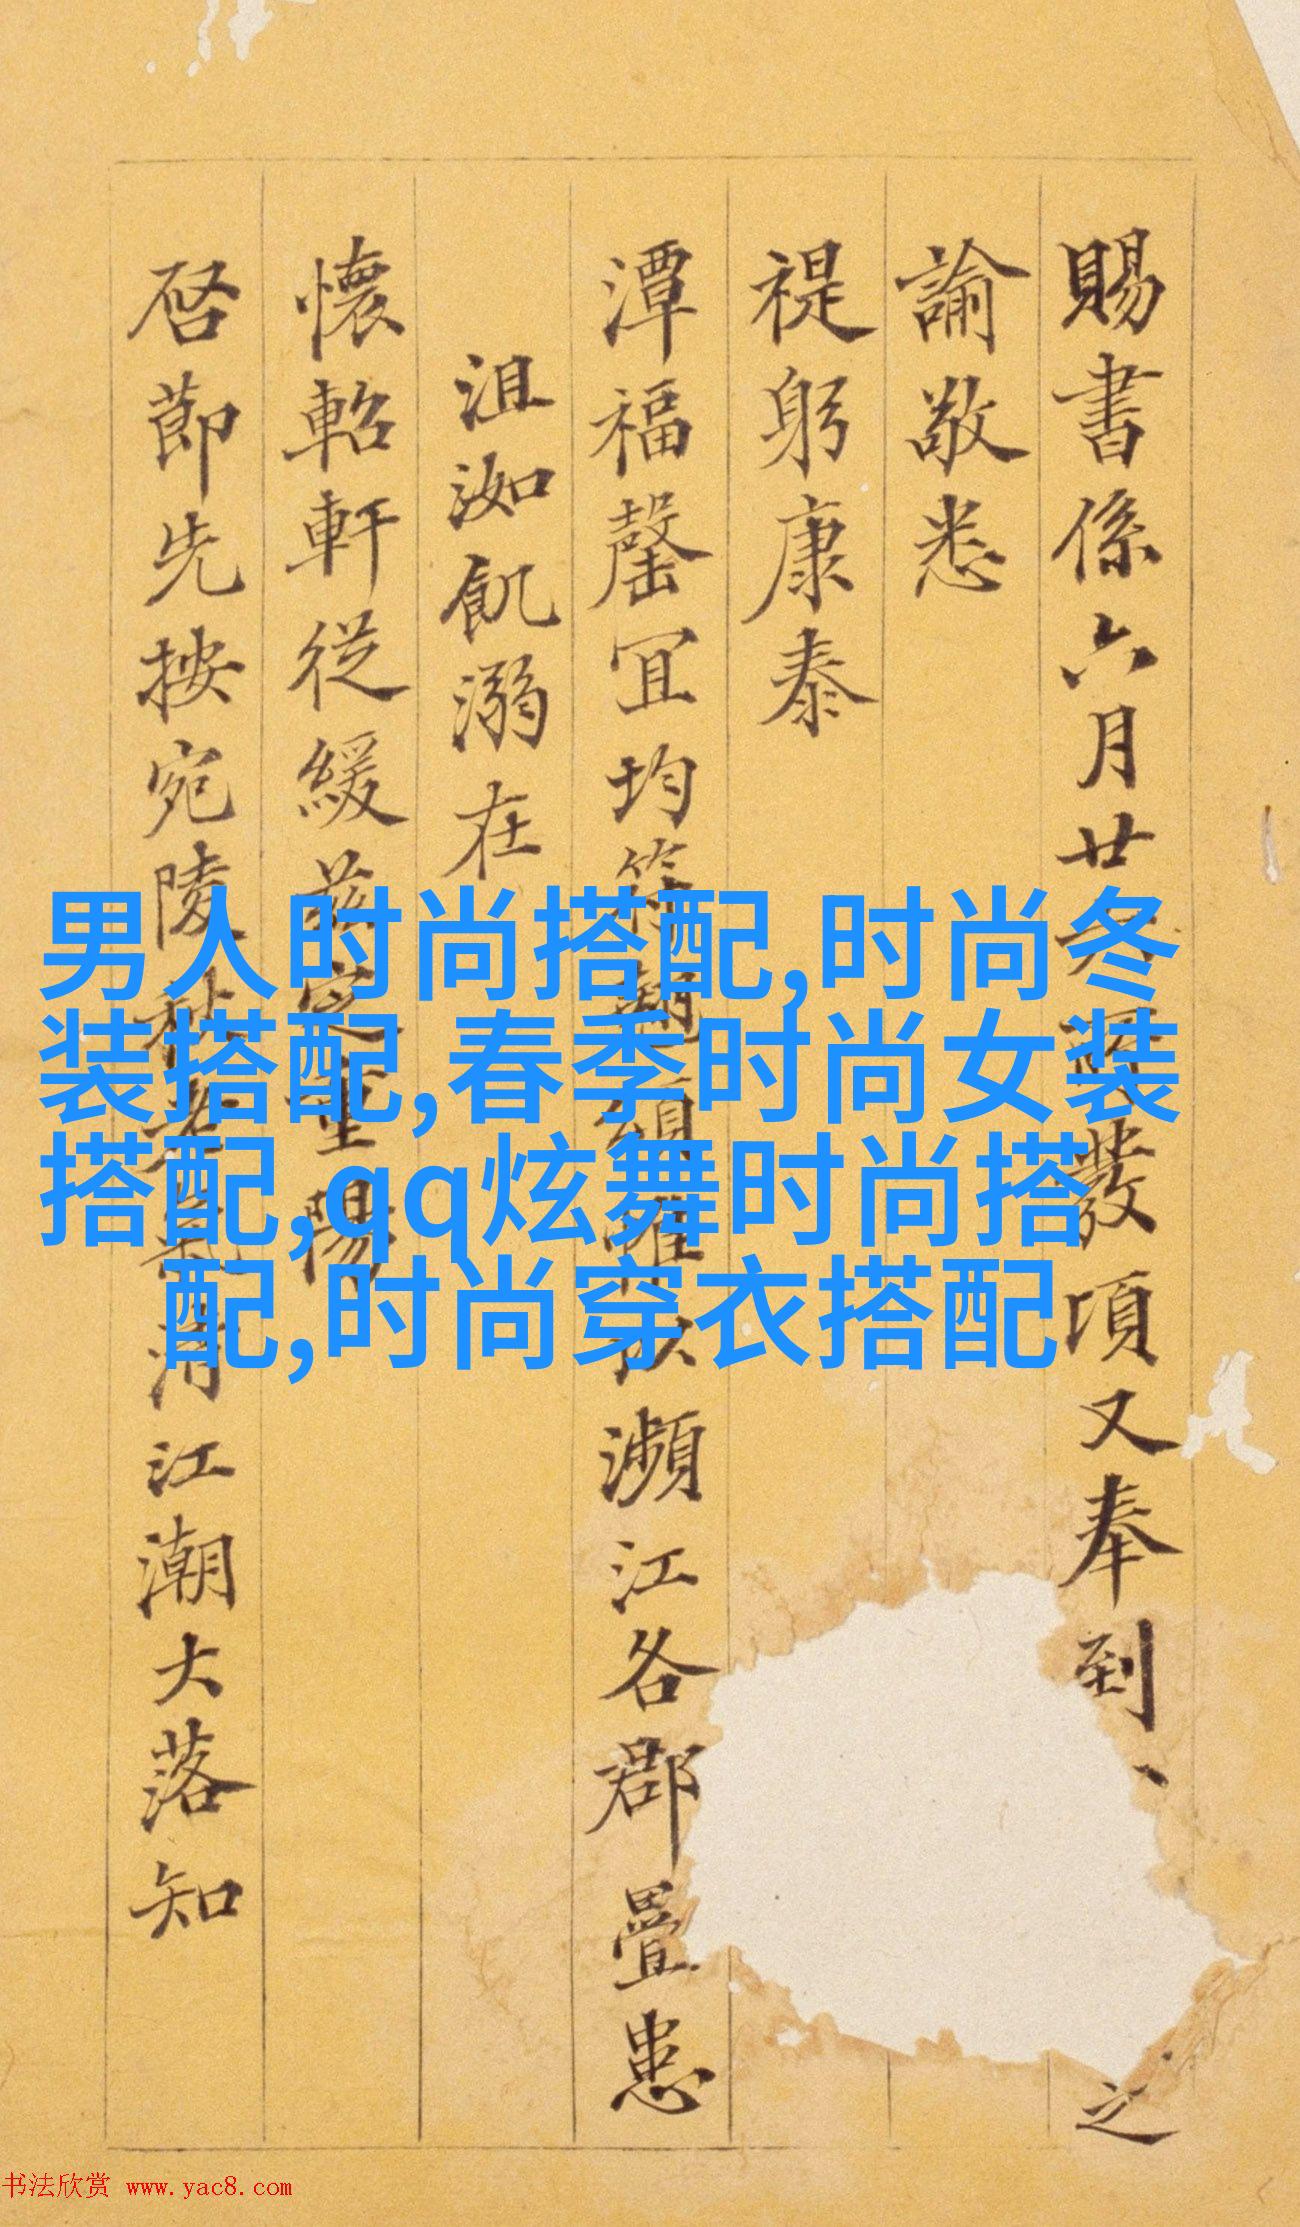 賜書係六月廿
發項又奉到
之
諭敬悉
禔躬康泰
潭福罄宜均符
瀕江各郡疊患
沮洳飢溺在
懷軺軒從緩茲定重陽
启節先按宛陵秋
清江潮大落知
男人时尚搭配,时尚冬
装搭配,春季时尚女装
搭配,qq炫舞时尚搭
配,时尚穿衣搭配
书法欣赏 www.yac8.com